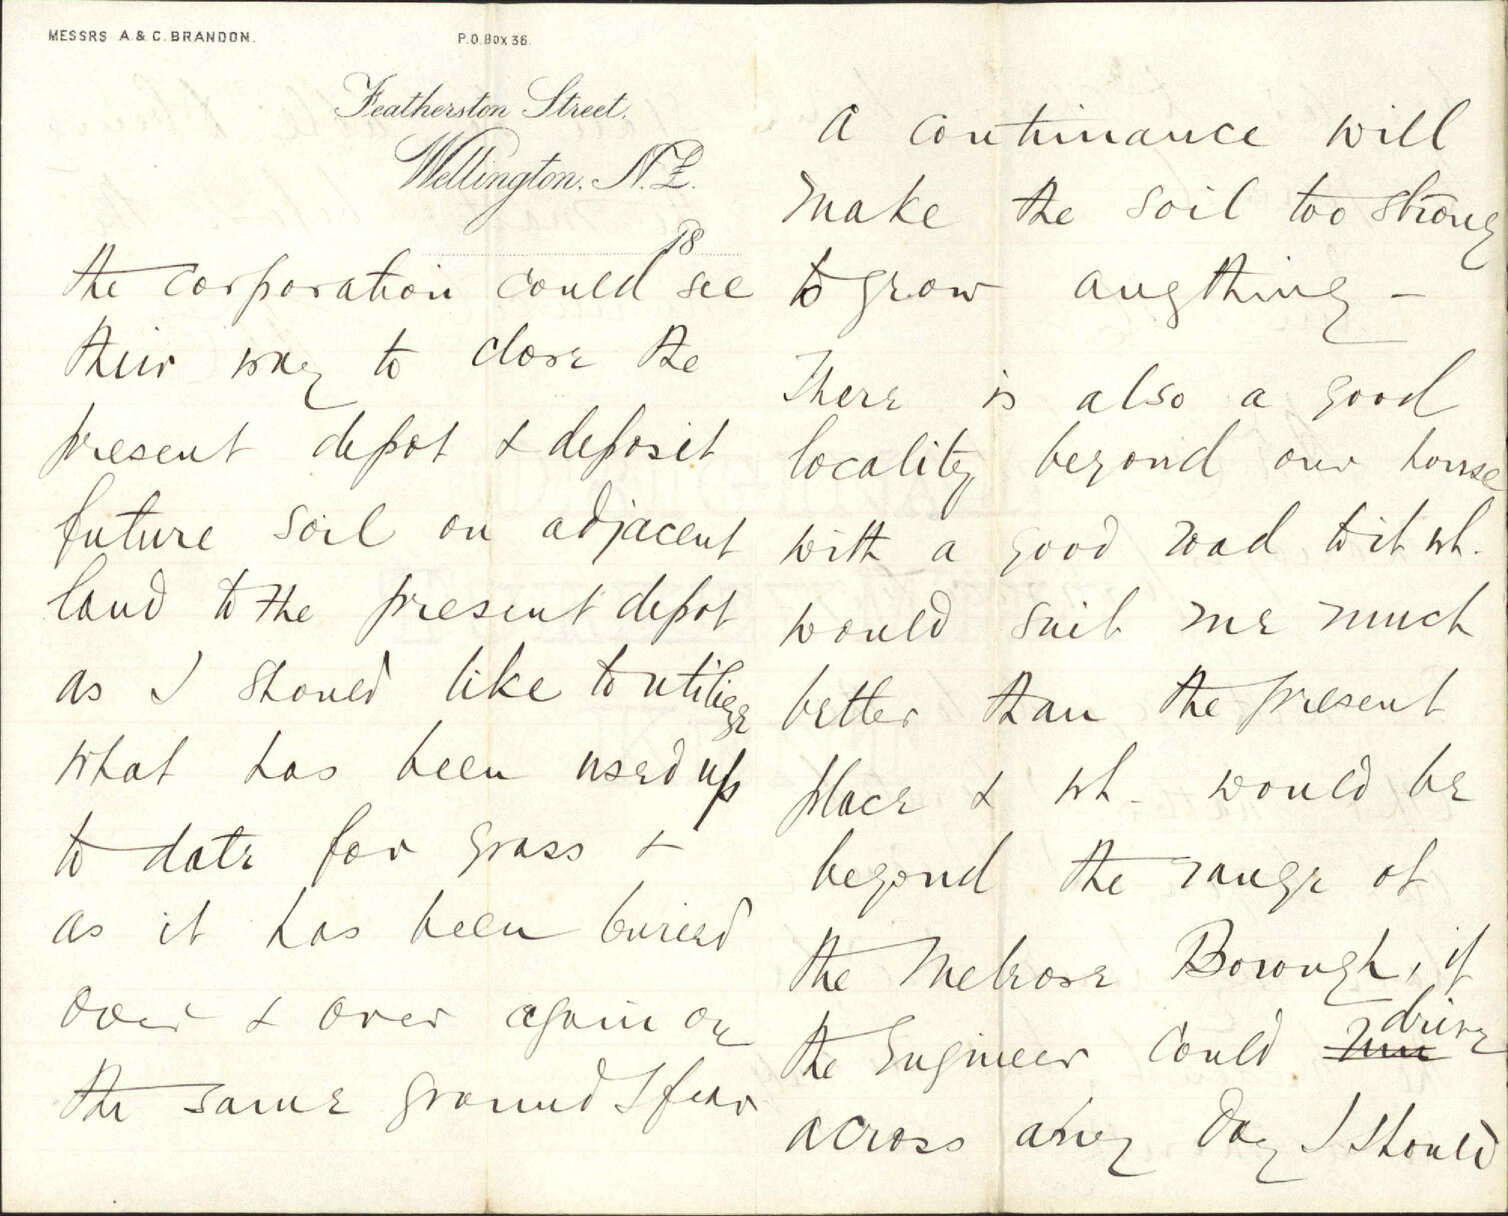 MESSRS A. & C. BRANDON.
P.O. Box 36.
Featherston Street.
Wellington. N.Z.
18
the corporation could see
their way to close the
present depot & deposit
future soil on adjacent
land to the present depot
as I should like to utilize
what has been used up
to date for grass &
as it has been buried
over & over again on
the same ground I fear
A continuance will
make the soil too strong
to grow anything -
There is also a good
locality beyond our house
with a good road to it wh.
would suit me much
better than the present
place & wh. would be
beyond the range of
the Melrose Borough, if
the Engineer could run drive
across any day I should